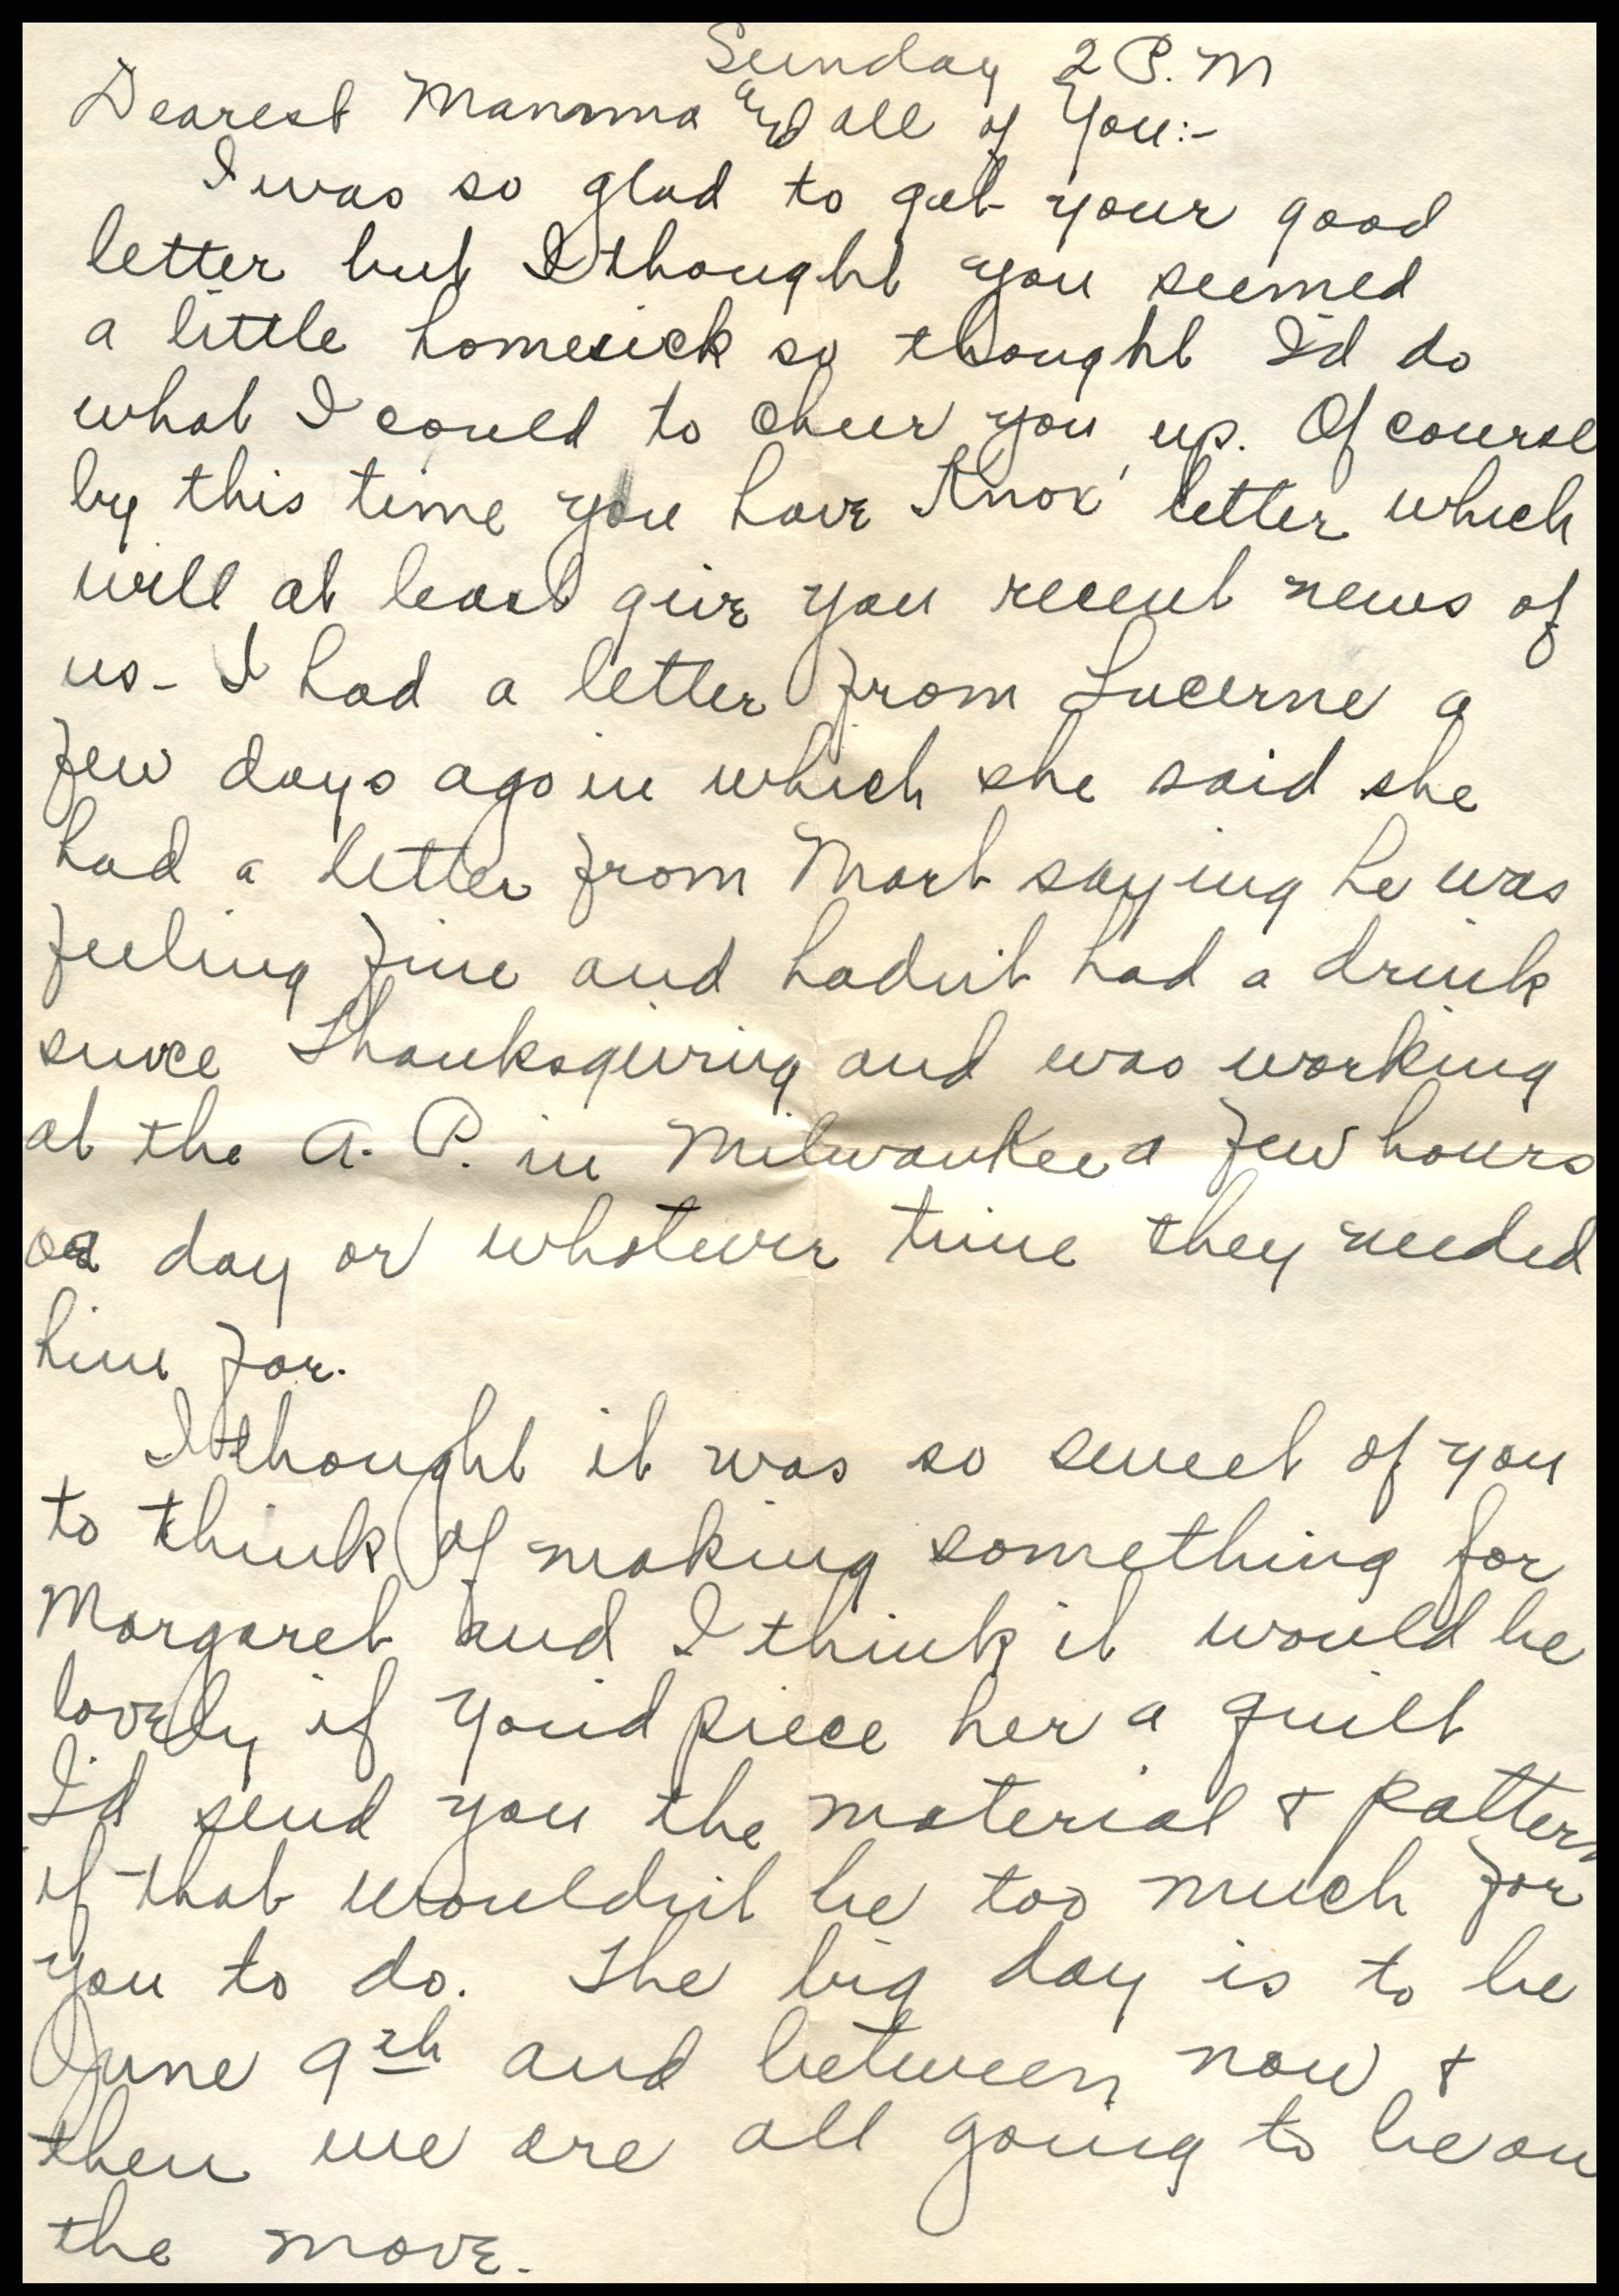 Sunday 2 P.M
Dearest Mamma and all of You:-
I was so glad to get your good
letter but I thought you seemed
a little homesick so thought I'd do
what I could to cheer you up. Of course
by this time you have Knox' letter which
will at least give you recent news of
us - I had a letter from Lucerne a
few days ago in which she said she
had a letter from Mart saying he was
feeling fine and hadn't had a drink
since Thanksgiving and was working
at the A. P. in Milwaukee a few hours
a day or whatever time they needed
him for.
I thought it was so sweet of you
to think of making something for
Margaret and I think it would be
lovely if you'd piece her a quilt
I'd send you the material & pattern
if that wouldn't be too much for
you to do. The big day is to be
June 9th and between now &
then we are all going to be on
the move.